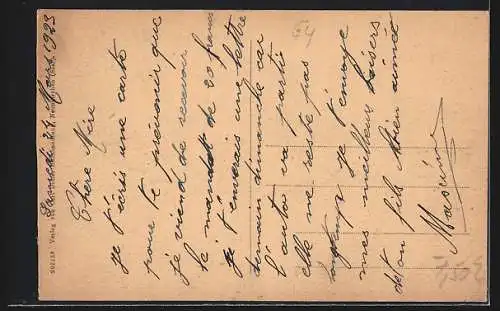 Samedi 24 Mars 1923
Chère Mère
je t'écris une carte
pour te prévenir que
je viend de recevoir
le mandat de 20 francs
je t'enverais une lettre
demain dimanche car
l'auto va partir
elle ne reste pas
longtemps je t'envoye
mes meilleurs baisers
de ton fils bien aimé
Maxime